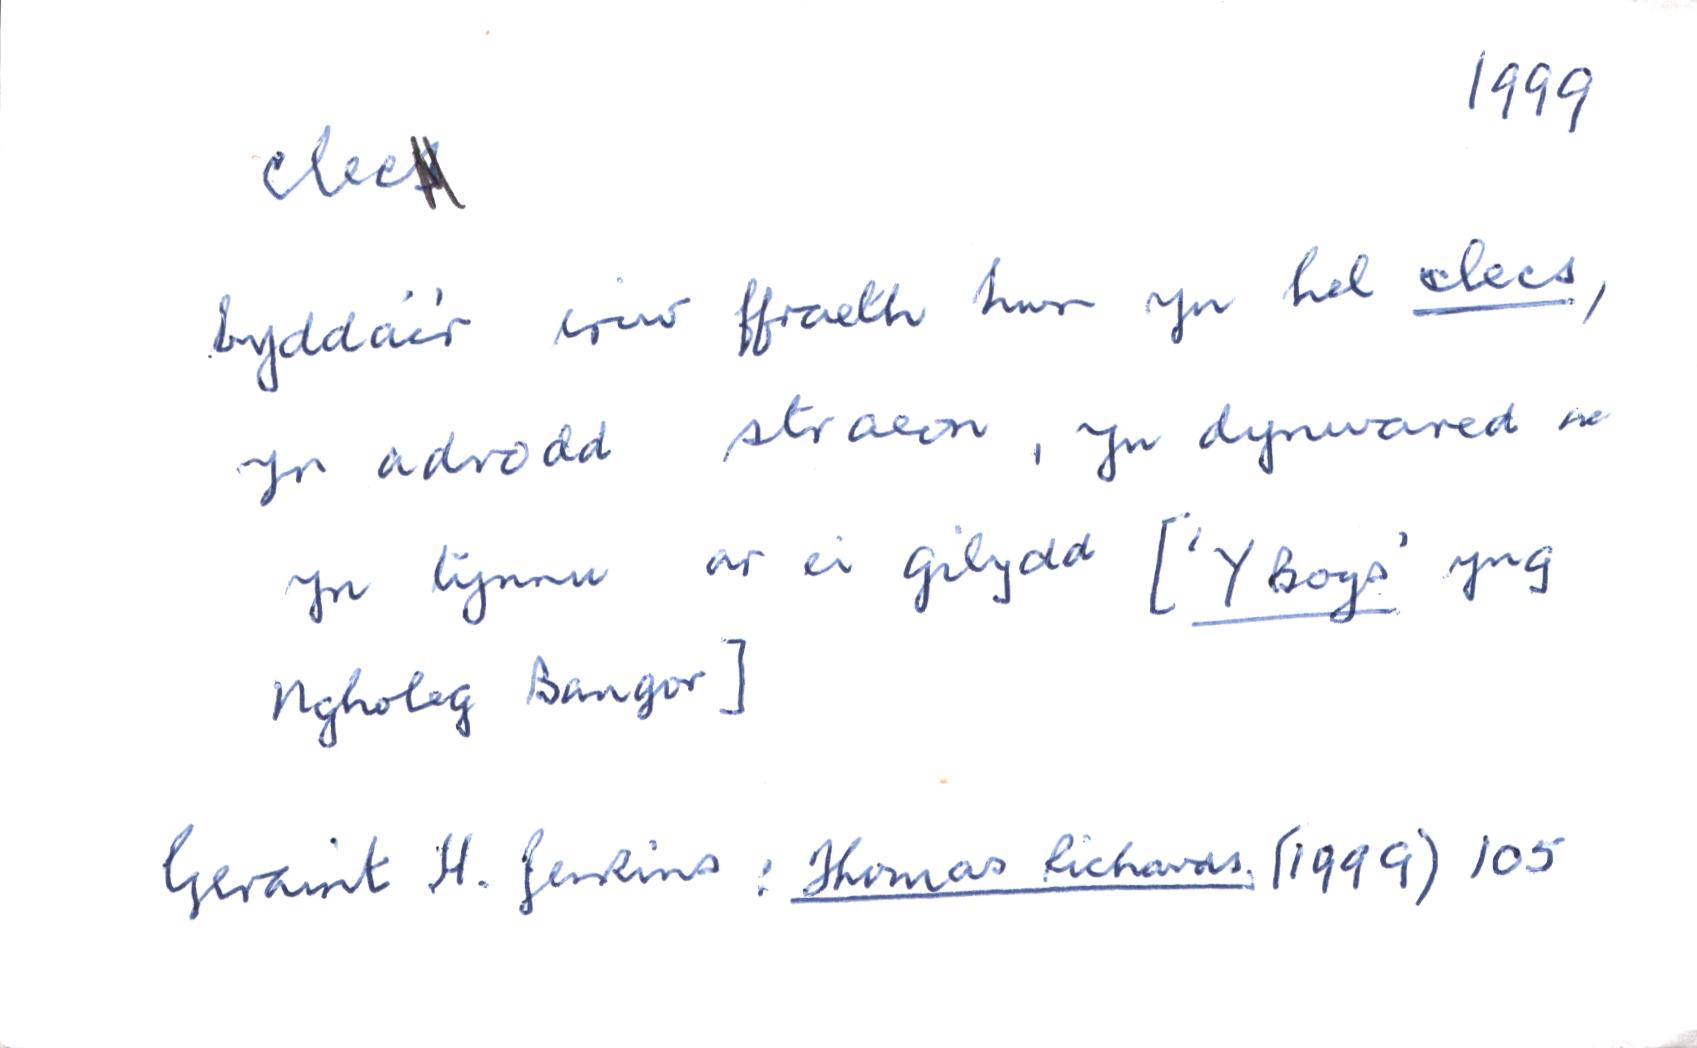 1999
clec
byddai'r criw ffraeth hwn yn hel clecs,
yn adrodd straeon, yn dynwared ac
yn tynnu ar ei gilydd ['Y Boys' yng
Ngholeg Bangor]
Geraint H. Jenkins : Thomas Richards. (1999) 105